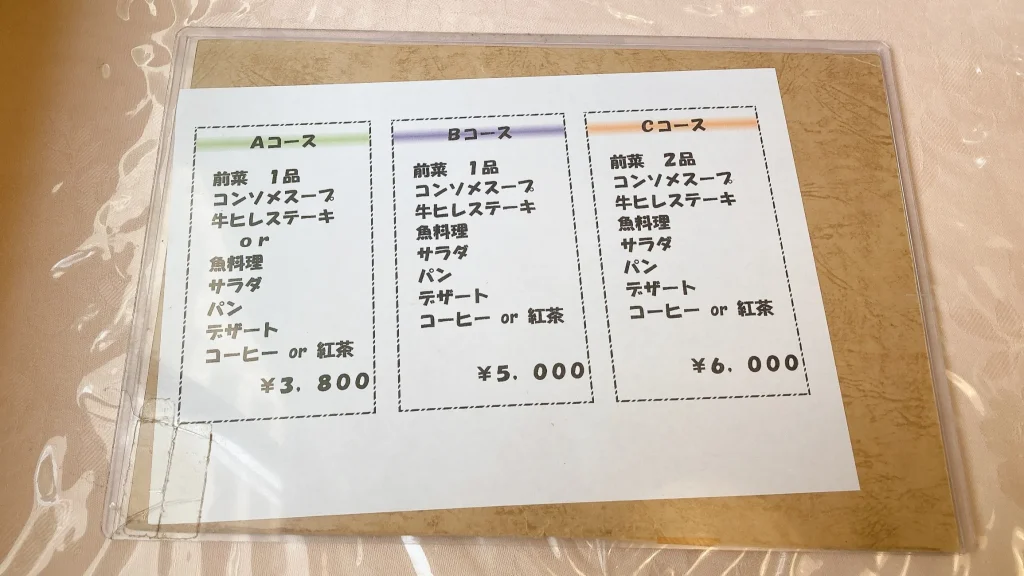 Aコース
前菜　1品
コンソメスープ
牛ヒレステーキ
or
魚料理
サラダ
パン
デザート
コーヒー or 紅茶
¥3，800
Bコース
前菜　1品
コンソメスープ
牛ヒレステーキ
魚料理
サラダ
パン
デザート
コーヒー or 紅茶
¥5，000
Cコース
前菜　2品
コンソメスープ
牛ヒレステーキ
魚料理
サラダ
パン
デザート
コーヒー or 紅茶
¥6，000